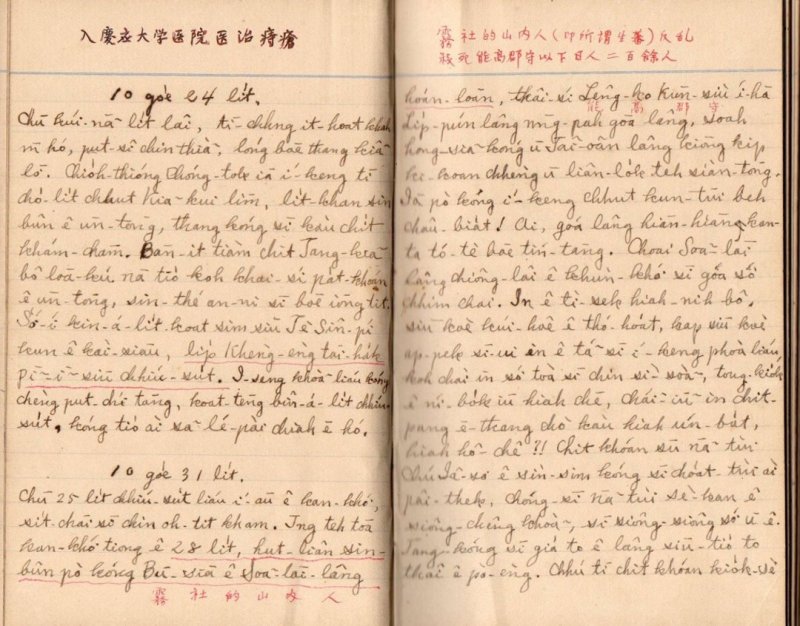 入慶应大学医院医治痔瘡
10 goe̍h 24 li̍t.
Chū kúi-nā li̍t lâi, tī-chhng it-hoat khah
m̄ hó, put-sî chin thiàⁿ, lóng bōe thang kiâⁿ
lō͘. Chio̍h-thióng Chóng-tok iā í-keng tī
chó-li̍t chhut Kia-kui lîm, li̍t-khan sin-
bûn ê ūn-tōng, thang kóng sī kàu chit
khám-chām. Bān-it tiàm chit Tang-kiaⁿ
bô loā-kú nā tio̍h koh khai-sí pa̍t-khoán
ê ūn-tōng, sin-thé an-ni sī bōe iōng-tit.
Só͘-í kin-á-li̍t koat sim siū Tē Sîn-pí
kun ê kài-siāu, li̍p Khèng-èng tāi-ha̍k
pī-īⁿ siū chhiú-su̍t. I-seng khòaⁿ liáu kóng
chèng put-chí tāng, koat-tēng bîn-á-li̍t chhiú-
su̍t, kóng tio̍h ài saⁿ lé-pài chiah ē hó.
10 goe̍h 31 li̍t.
Chū 25 li̍t chhiú-su̍t liáu í-āu ê kan-khó͘,
si̍t-chāi sī chin oh-tit kham. Tng teh toā
kan-khó͘ tiong ê 28 li̍t, hut-liân sin-
bûn pò kóng Bū-siā ê Soaⁿ-lāi-lâng
霧社的山内人
霧社的山内人(即所謂生蕃)反乱
殺死能高郡守以下日人二百餘人
hoán-loān, thâi-sí Lêng-ko kūn-siú í-hā
能高郡守
Li̍p-pún lâng nn̄g-pah goā lâng, soah
hong-siaⁿ kóng ū Tâi-oân lâng kiōng kip
ki-koan chhèng ū liân-lo̍k teh siàn-tōng.
Iā pò kóng í-keng chhut kun-tūi beh
chau-bia̍t! Ai, goá lâng hiān-hiān kan-
ta tó-tè bōe tín-tāng. Choai Soaⁿ-lāi
lâng chiông-lâi ê khùn-khó͘ sī goá só͘
chhim chai. In ê tì-sek hiah-nih bô,
siū koè kúi-hoê ê thó-hoa̍t, kap siū koè
ap-pek sī-ui in ê táⁿ sī í-keng phoà liáu,
koh chai in só͘ toà sī chin sì-soàⁿ, tong-kio̍k
ê ni-bo̍k iū hiah chē, cháiⁿ-iūⁿ in chit-
pang ē-thang chò kàu hiah ún-ba̍t,
hiah hô-chê?!! Chit khoán sū nā tùi
Chú Iâ-so͘ ê sìn-sim kóng sī choa̍t-tùi ài
pâi-thek, chóng-sī nā tùi sè-kan ê
siông-chêng khoàⁿ, sī siông-siông só͘ ū ê.
Tang-kóng sī gia̍h to ê lâng siū-tio̍h to
thâi ê pò-èng. Chhú tī chit khoán kio̍k-sè